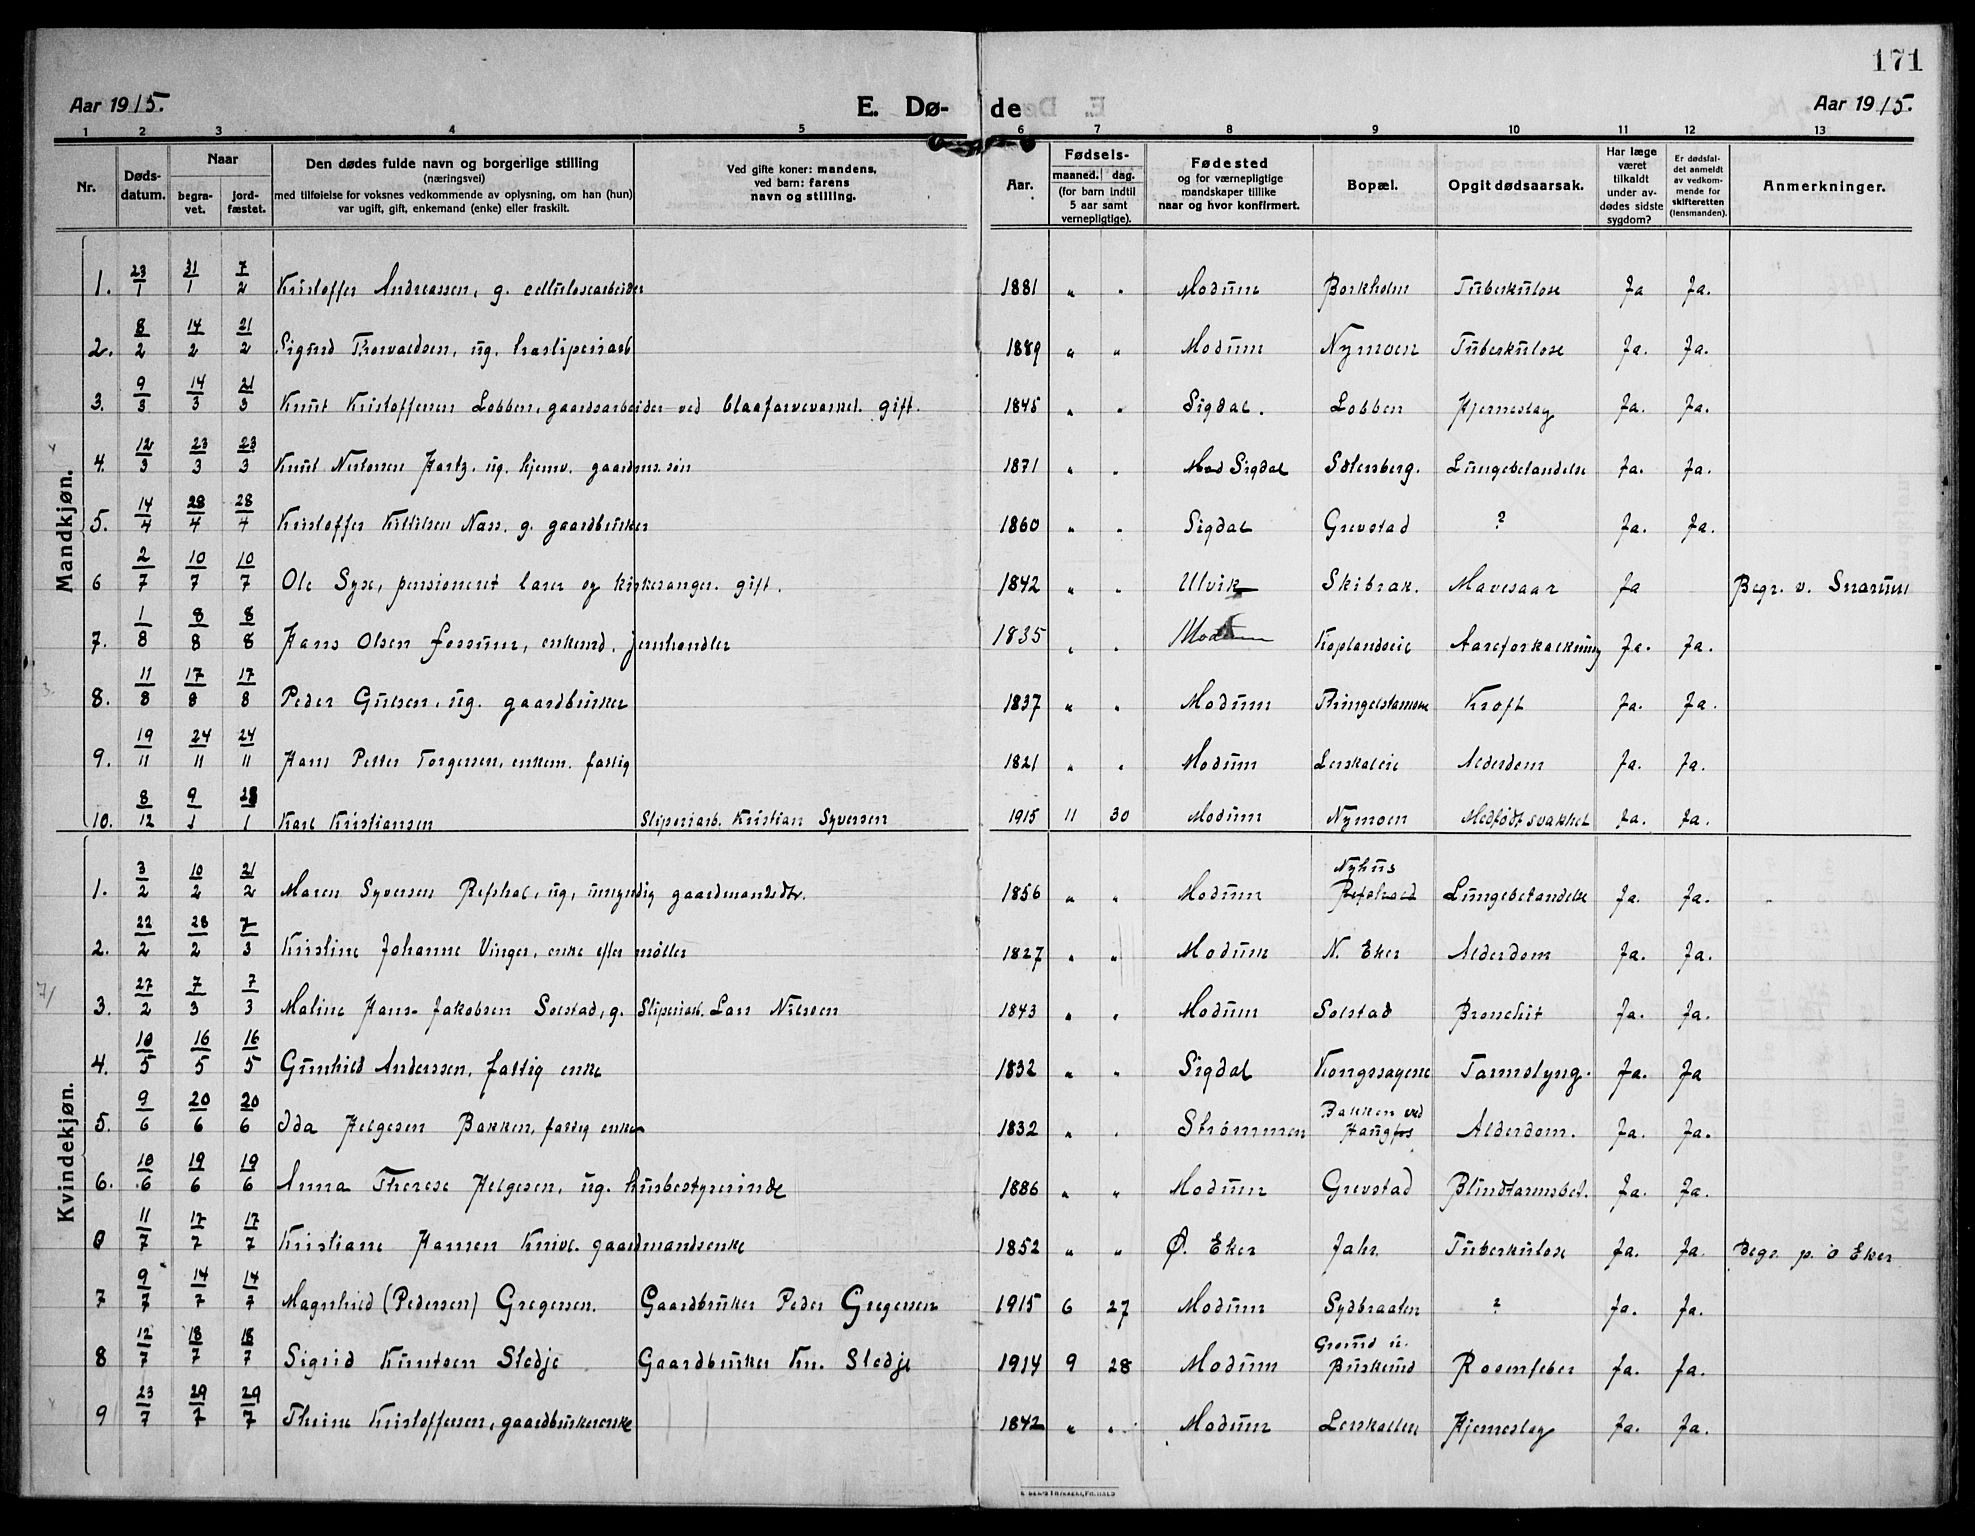 171
Aar 1915. E. Dø- de E. Dø Aar 1915.
1 2 3 4 5 6 7 8 9 10 11 12 13
Nr. Døds-datum. Naar begra-vet. jord-fæstet. Den dødes fulde navn og borgerlige stilling (næringsvei) med tilføielse for voksnes vedkommende av oplysning, om han (hun) var ugift, gift, enkemand (enke) eller fraskilt. Ved gifte koner: mandens, ved barn: farens navn og stilling. Aar. Fødsels- maaned. dag. (for barn indtil 5 aar samt vernepligtige). Fødested og for værnepligtige mandskaper tillike naar og hvor konfirmert. Bopæl. Opgit dødsaarsak. Har læge været tilkaldt under av-dødes sidste sygdom? Er dødsfal-det anmeldt av vedkom-mende for skifteretten (lensmanden). Anmerkninger.
Mandkjøn.
1. 23/1 31/1 7/2 Kristoffer Andreassen, g. cellulosearbeider 1881 " " Modum Borkholm Tuberkulose Ja Ja.
2. 8/2 14/2 21/2 Sigurd Thorvaldsen, ug. træsliperiarb 1889 " " Modum Nymoen Tuberkulose Ja. Ja.
3. 9/3 14/3 21/3 Knut Kristoffersen Lobben, gaardsarbeider ved blaafarveverket. gift. 1845 " " Sigdal. Lobben Hjerneslag Ja. Ja.
4. 12/3 23/3 23/3 Knut Nertossen ug. hjemv. gaardms. søn 1871 " " Sigdal Lungebetændelse Ja. Ja.
5. 14/4 28/4 28/4 Kristoffer Kittilsen Næss. g. gaardbruker 1860 " " Sigdal Grevstad ? Ja. Ja.
6 2/7 10/7 10/7 Ole Syse, pensioneret lærer og kirkesanger. gift. 1842 " " Ulvik Skibrak. Mavesaar Ja Begr. v. Snarum
7. 1/8 8/8 8/8 Hans Olsen Fossum, enkemd. jernhandler 1835 " " Modum Koplandseie Aareforkalkning Ja. Ja.
8. 11/8 17/8 17/8 Peder Gulsen, ug. gaardbruker 1837 " " Modum Kræft Ja. Ja.
9. 19/11 24/11 24/11 Hans Petter Torgersen, enkem. fattig 1821 " " Modum Lerskaleie Alderdom Ja. Ja.
10. 8/12 9/1 23/1 Karl Kristiansen Sliperiarb. Kristian Syversen 1915 11 30 Modum Nymoen Medfødt svakhet Ja. Ja.
Kvindekjøn.
1. 3/2 10/2 21/2 Maren Syversen Refshal, ug, umyndig gaardmandsdtr. 1856 " " Modum Nyhus Refshald Lungebetændelse Ja. Ja.
2. 22/2 28/2 7/3 Kristine Johanne Vinger, enke efter møller 1827 " " Modum N. Eker Alderdom Ja. Ja.
3. 27/2 7/3 7/3 Maline Hans-Jakobsen Solstad, g. Sliperiarb. Lars Nilsen 1843 " " Modum Solstad Bronchit Ja. Ja.
4. 10/5 16/5 16/5 Gunhild Anderssen, fattig enke 1832 " " Sigdal Kongssagene Tarmslyng. Ja. Ja
5. 9/6 20/6 20/6 Ida Helgesen Bakken, fattig enke 1832 " " Strømmen Bakken ved Haugfos Alderdom. Ja. Ja.
6. 10/6 19/6 19/6 Anna Therese Helgesen, ug. husbestyrerinde 1886 " " Modum Grevstad Blindtarmsbet. Ja. Ja.
0 11/7 17/7 17/7 Kristiane Hansen Knive. gaardmandsenke 1852 " " Ø. Eker Jahr Tuberkulose Ja. Ja. Begr. p. ø Eker
7 9/7 14/7 14/7 Magnhild (Pedersen) Gregersen. Gaardbruker Peder Gregersen 1915 6 27 Modum Sydbraaten ? Ja. Ja.
8 12/7 18/7 18/7 Sigrid Knutsen Stedje Gaardbruker Kn. Stedje 1914 9 28 Modum Buskerud Rosenfeber Ja. Ja.
9 23/7 29/7 29/7 Thrine Kristoffersen, gaardbrukerenke 1842 " " Modum Lerskallen Hjerneslag Ja. Ja.